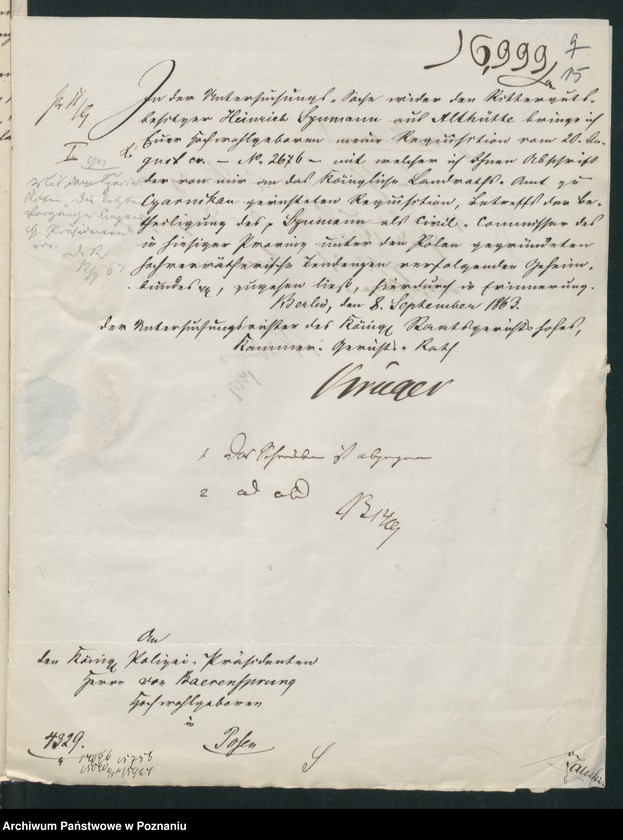 16,999
9
15
In der Untersuchungs-Sache wider den Ritterguts-
besitzer Heinrich Szumann aus Althütte bringe ich
Euer Hochwohlgeboren meine Requisition vom 20. Au-
gust cr. – No. 2676 – mit welcher ich Ihnen Abschrift
der von mir an das Königliche Landraths-Amt zu
Czarnikau gerichteten Requisition, betreffs der Be-
theiligung des p. Szumann als Civil-Commissar des
in hiesiger Provinz unter den Polen gegründeten
hochverrätherische Tendenzen verfolgenden Geheim-
bundes pp, zugehen ließ, hierdurch in Erinnerung.
Berlin, den 8. September 1863.
Der Untersuchungsrichter des Königl. Staatsgerichtshofes,
Kammer-Gerichts-Rath
Krüger
1 Das Schreiben ist abgegangen
2 ad acta
An
den Königl. Polizei-Präsidenten
Herrn von Baerensprung
Hochwohlgeboren
in
Posen
4329.
Archiwum Państwowe w Poznaniu